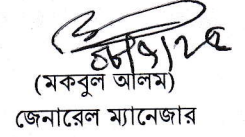 (মকবুল আলম)
জেনারেল ম্যানেজার